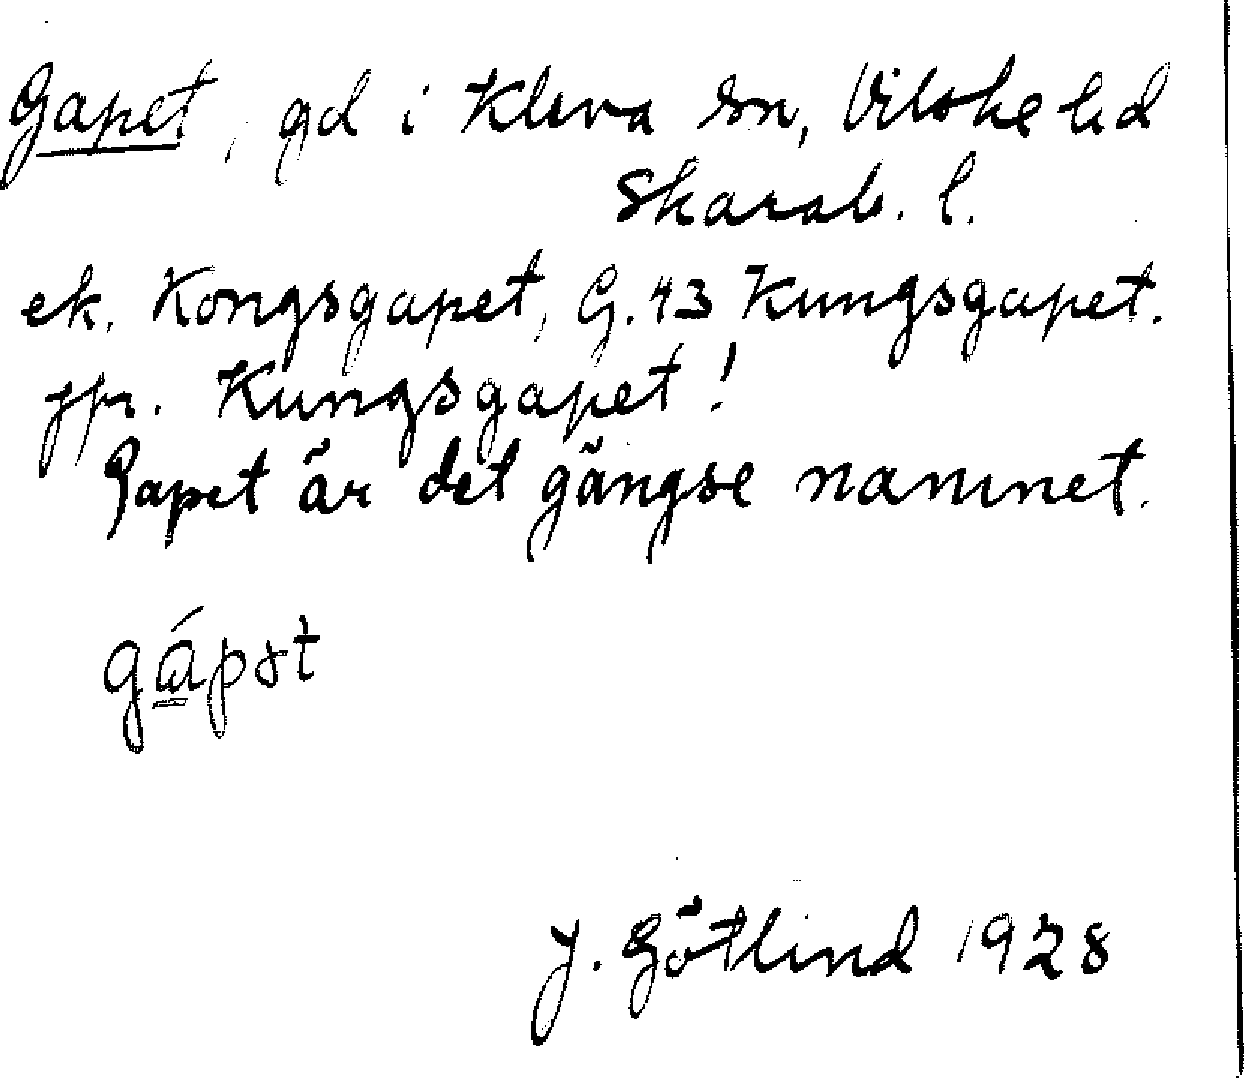 Gapet, gd i Kleva sn, Vilske hd
Skarab. l.
ek. Kongsgapet, G. 43 Kungsgapet.
jfr. Kungsgapet!
Gapet är det gängse namnet.
J. Götlind 1928